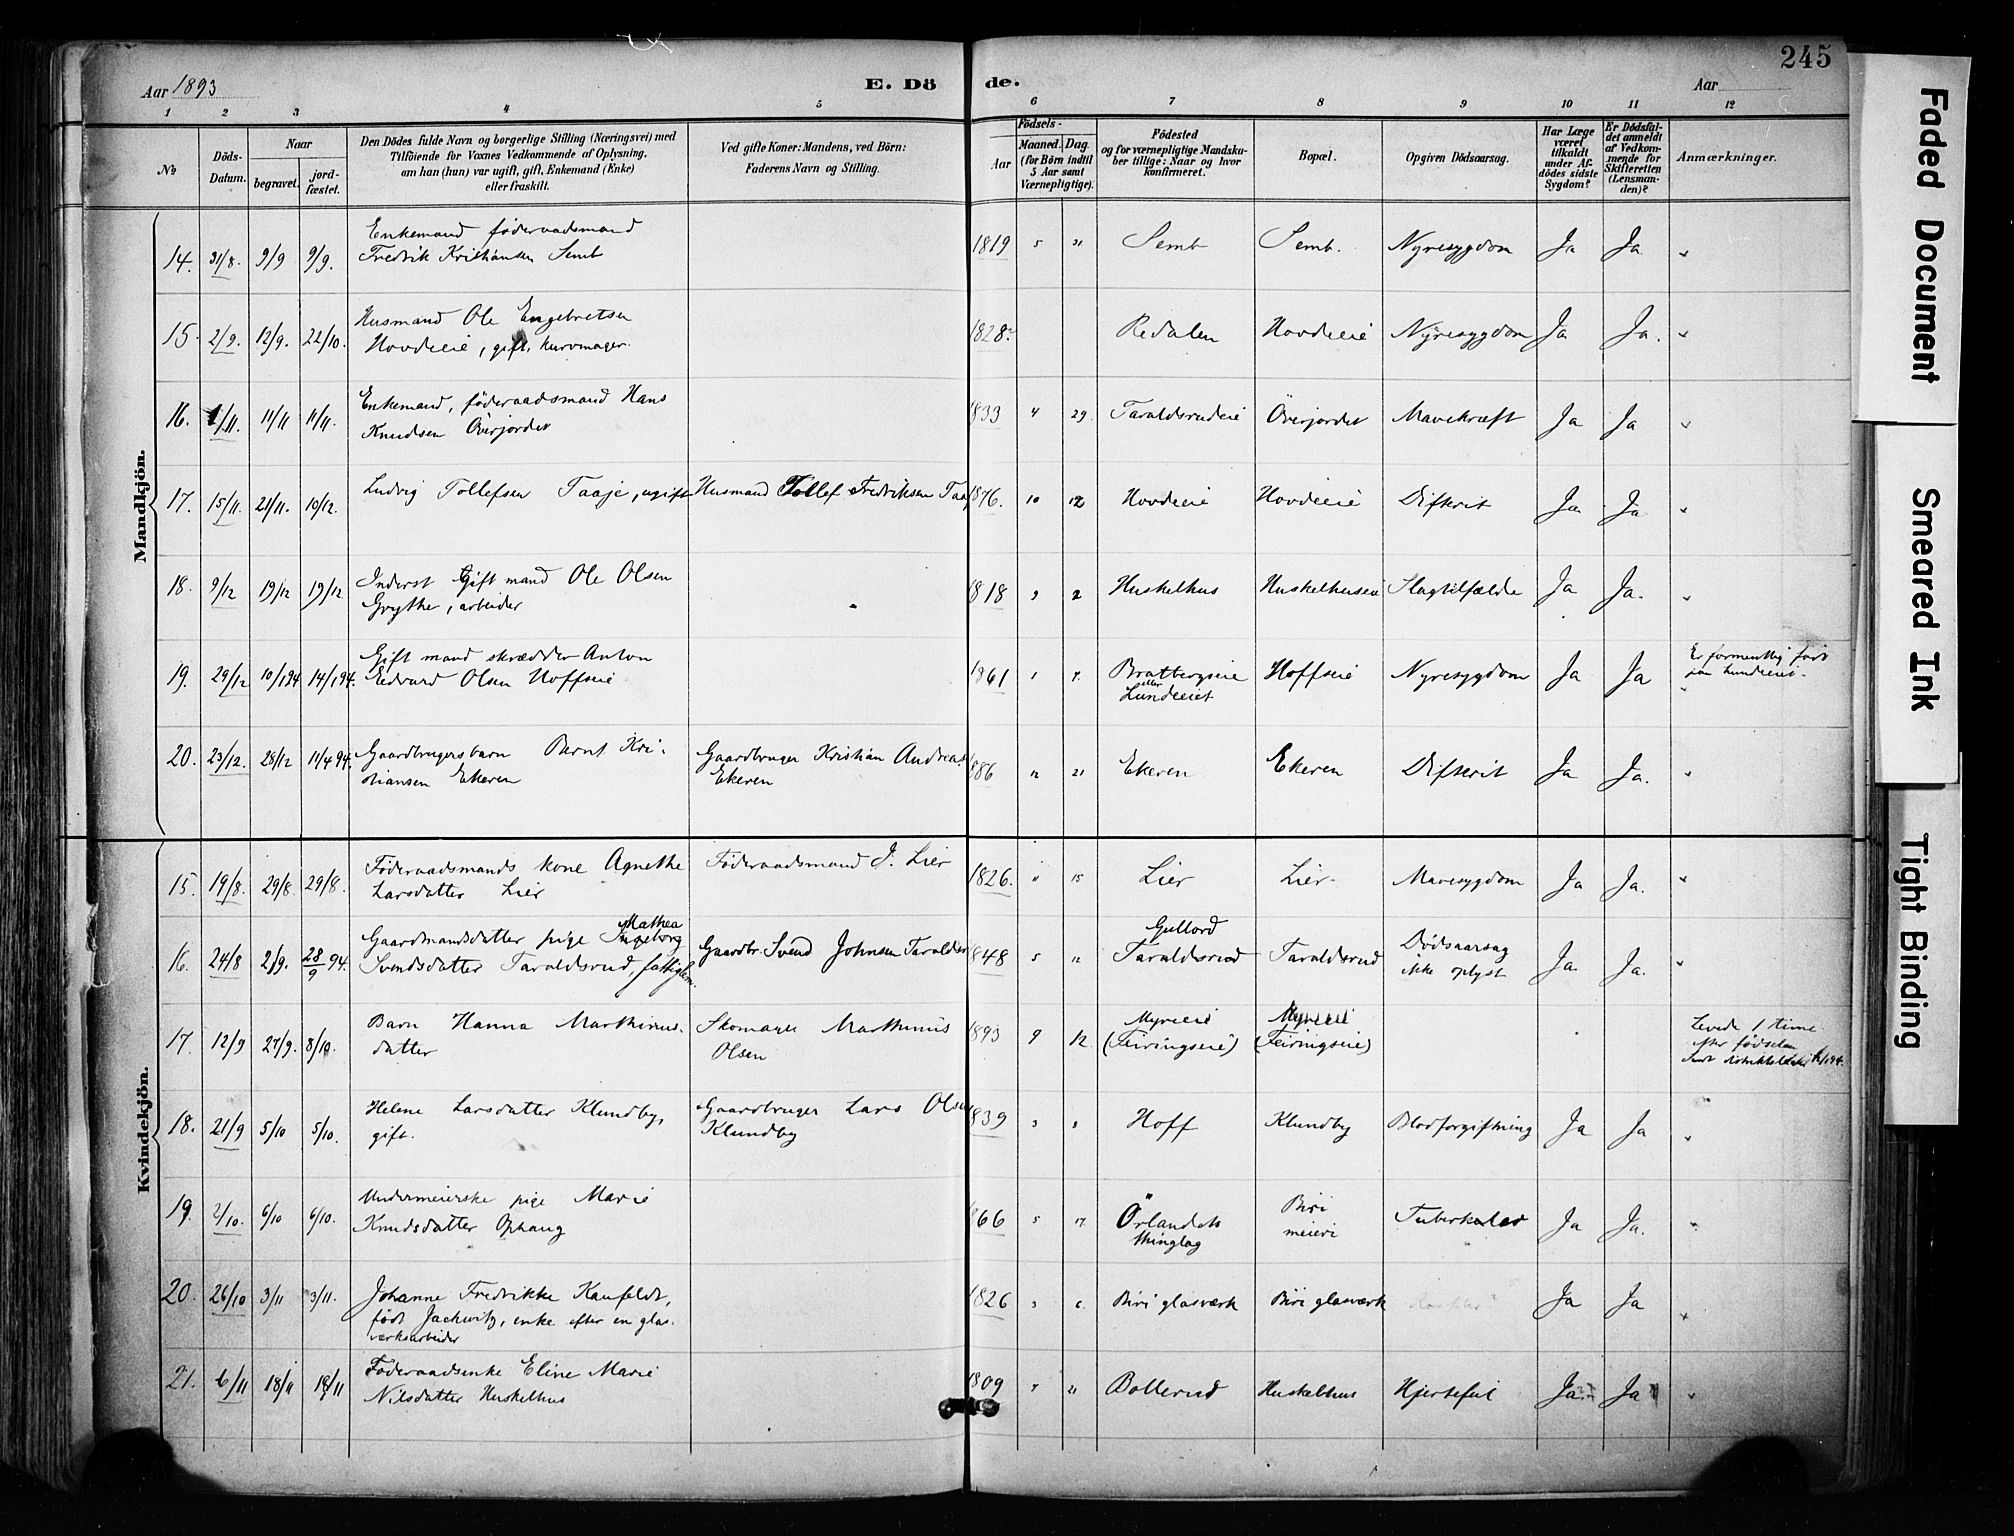 245
Aar 1893
E. Dö de.
Aar
1 2 3 4 5 6 7 8 9 10 11 12
No
Döds-Datum.
Naar
begravet.
jord-fæstet.
Den Dödes fulde Navn og borgerlige Stilling (Næringsvei) med
Tilföiende for Voxnes Vedkommende af Oplysning,
om han (hun) var ugift, gift, Enkemand (Enke)
eller fraskilt.
Ved gifte Koner: Mandens, ved Börn:
Faderens Navn og Stilling.
Födsels-
Aar
Maaned. Dag.
(for Börn indtil
5 Aar samt
Værnepligtige).
Födested
og for værnepligtige Mandsku-
ber tillige: Naar og hvor
konfirmeret.
Bopæl.
Opgiven Dödsaarsag.
Har Læge
været
tilkaldt
under Af-
dödes sidste
Sygdom?
Er Dödsfal-
det anmeldt
af Vedkom-
mende for
Skifteretten
(Lensman-
den)?
Anmærkninger.
Mandkjön.
14. 31/8. 9/9 9/9. Enkemand föderaadsmand
Fredrik Kristiansen Semb
1819 5 31 Semb Semb. Nyresygdom Ja Ja "
15. 2/9. 12/9. 22/10. Husmand Ole Engebretsen
Hovdeeie, gift, kurvmager.
1828? Redalen Hovdeeie Nyresygdom Ja Ja. "
16. 1/11. 11/11 11/11. Enkemand, föderaadsmand Hans
Knudsen Överjordet
1833 4 29. Taraldsrudeie Överjordet Mavekræft Ja Ja "
17. 15/11. 21/11. 10/12. Ludvig Tollefsen Taaje, ugift Husmand Tollef Fredriksen Taa
1876. 10 12 Hovdeeie Hovdeeie Difterit Ja Ja "
18. 9/12 19/12 19/12 Inderst Gift mand Ole Olsen
Grythe, arbeider
1818 9 2 Huskelhus Huskelhuseie Slagtilfælde Ja Ja. "
19. 29/12 10/1 94 14/1 94. Gift mand skrædder Anton
Edvard Olsen Hoffseie
1861 1 7. Brattbergseie
eller
Lundeeiet
Hoffseie Nyresygdom Ja Ja Er formentlig født
paa Lundeeiet.
20. 23/12. 28/12 11/4 94. Gaardbrugersbarn Bernt Kri-
stiansen Ekeren
Gaardbruger Kristian Andreas.
Ekeren
886 12 21 Ekeren Ekeren Difterit Ja Ja. "
Kvindekjön.
15. 19/8. 29/8. 29/8. Föderaadsmands kone Agnethe
Larsdatter Lier
Föderaadsmand J. Lier
1826. 11 15 Lier Lier. Mavesygdom Ja Ja. "
16. 24/8 2/9. 28/9 94. Gaardmandsdatter pige Mathea
Ingeborg
Svendsdatter Taraldsrud, fattiglem.
Gaardbr. Svend Johnsen Taraldsr
1848 5 12 Gullord
Taraldsrud
Taraldsrud Dödsaarsag
ikke oplyst
Ja Ja. "
17. 12/9 27/9. 8/10. Barn Hanna Marthinus-
datter
Skomager Marthinus
Olsen
1893 9 12 Myreeie
(Feiringseie)
Myreeie
(Feiringseie)
Levede 1 time
efter födselen
18. 21/9 5/10 5/10. Helene Larsdatter Klundby,
gift.
Gaardbruger Lars Olsen
Klundby
1839 3 Hoff Klundby Blodforgiftning Ja Ja "
19. 2/10. 6/10 6/10. Undermeierske pige Marie
Knudsdatter Ophaug
1866 5 17 Örlandets
thinglag
Biri
meieri
Tuberkulos Ja Ja. "
20. 26/10 3/11 3/11. Johanne Fredrikke Kanfeldt,
født Jackwitz, enke efter en glas-
værksarbeider
1826 3 6. Biri glasværk Biri glasværk Ja Ja "
21. 6/11 18/11 18/11 Föderaadsenke Eline Marie
Nilsdatter Huskelhus
1809 21 Bollerud Huskelhus Hjertefeil Ja Ja "
Faded Document
Smeared Ink
Tight Binding